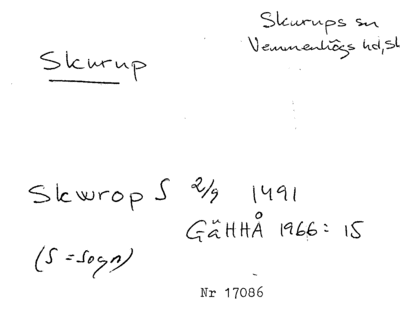 Skurups sn
Vemmenhögs hd, Sk
Skurup
Skwrop S 2/9 1491
GäHHÅ 1966: 15
(S = Sogn)
Nr 17086